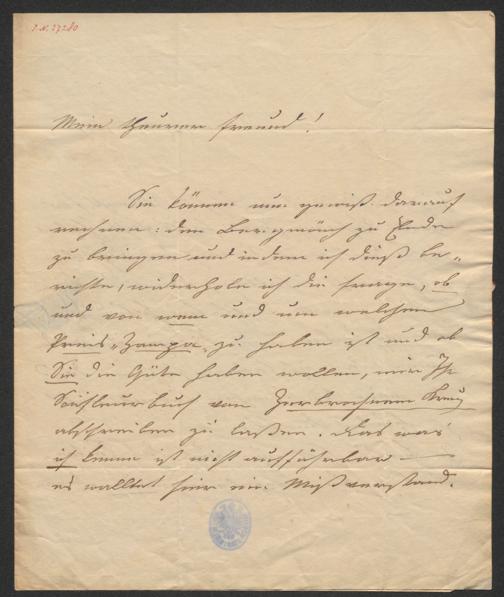 I.N. 37280
Mein theurer Freund!
Sie können nun gewiß darauf
rechnen: den Bergmönch zu Ende
zu bringen und indem ich dieß be-
richte, widerhole ich die Frage, ob
und von wem und um welchen
Preis "Zampa" zu haben ist und ob
Sie die Güte haben wollen, mir Ihr
Soufleurbuch vom Zerbrochnem Krug
abschreiben zu laßen. Das was
ich kenne ist nicht aufführbar —
es walltet hier ein Mißverstand.